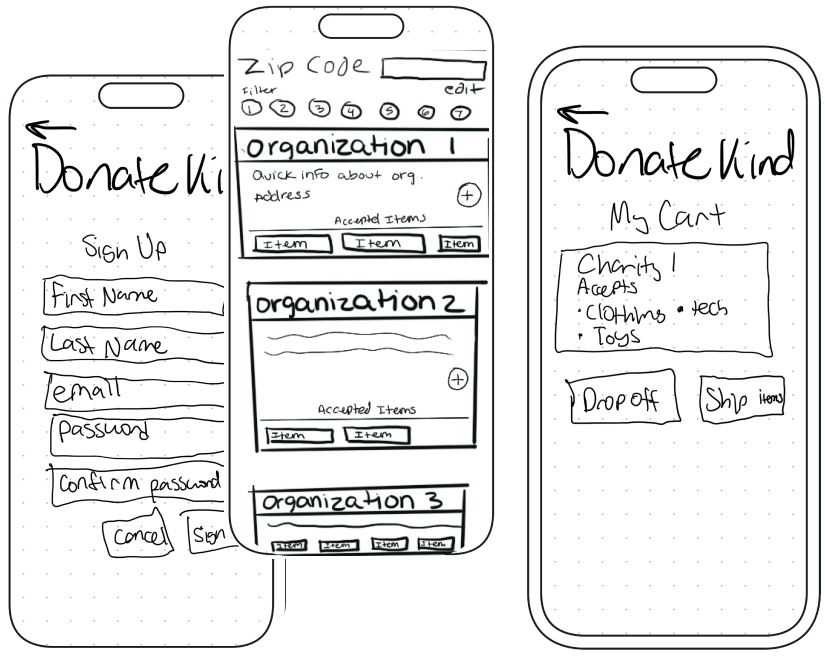 Donate Ki
Sign Up
First Name
Last Name
email
password
confirm password
Cancel
Sign
Zip Code
Filter
edit
1 2 3 4 5 6 7
organization 1
Quick info about org.
Address
+
Accepted Items
Item Item Item
organization 2
+
Accepted Items
Item Item
organization 3
Item Item Item Item
Donate Kind
My Cart
Charity 1
Accepts
• Clothing • tech
• Toys
Drop off
Ship items